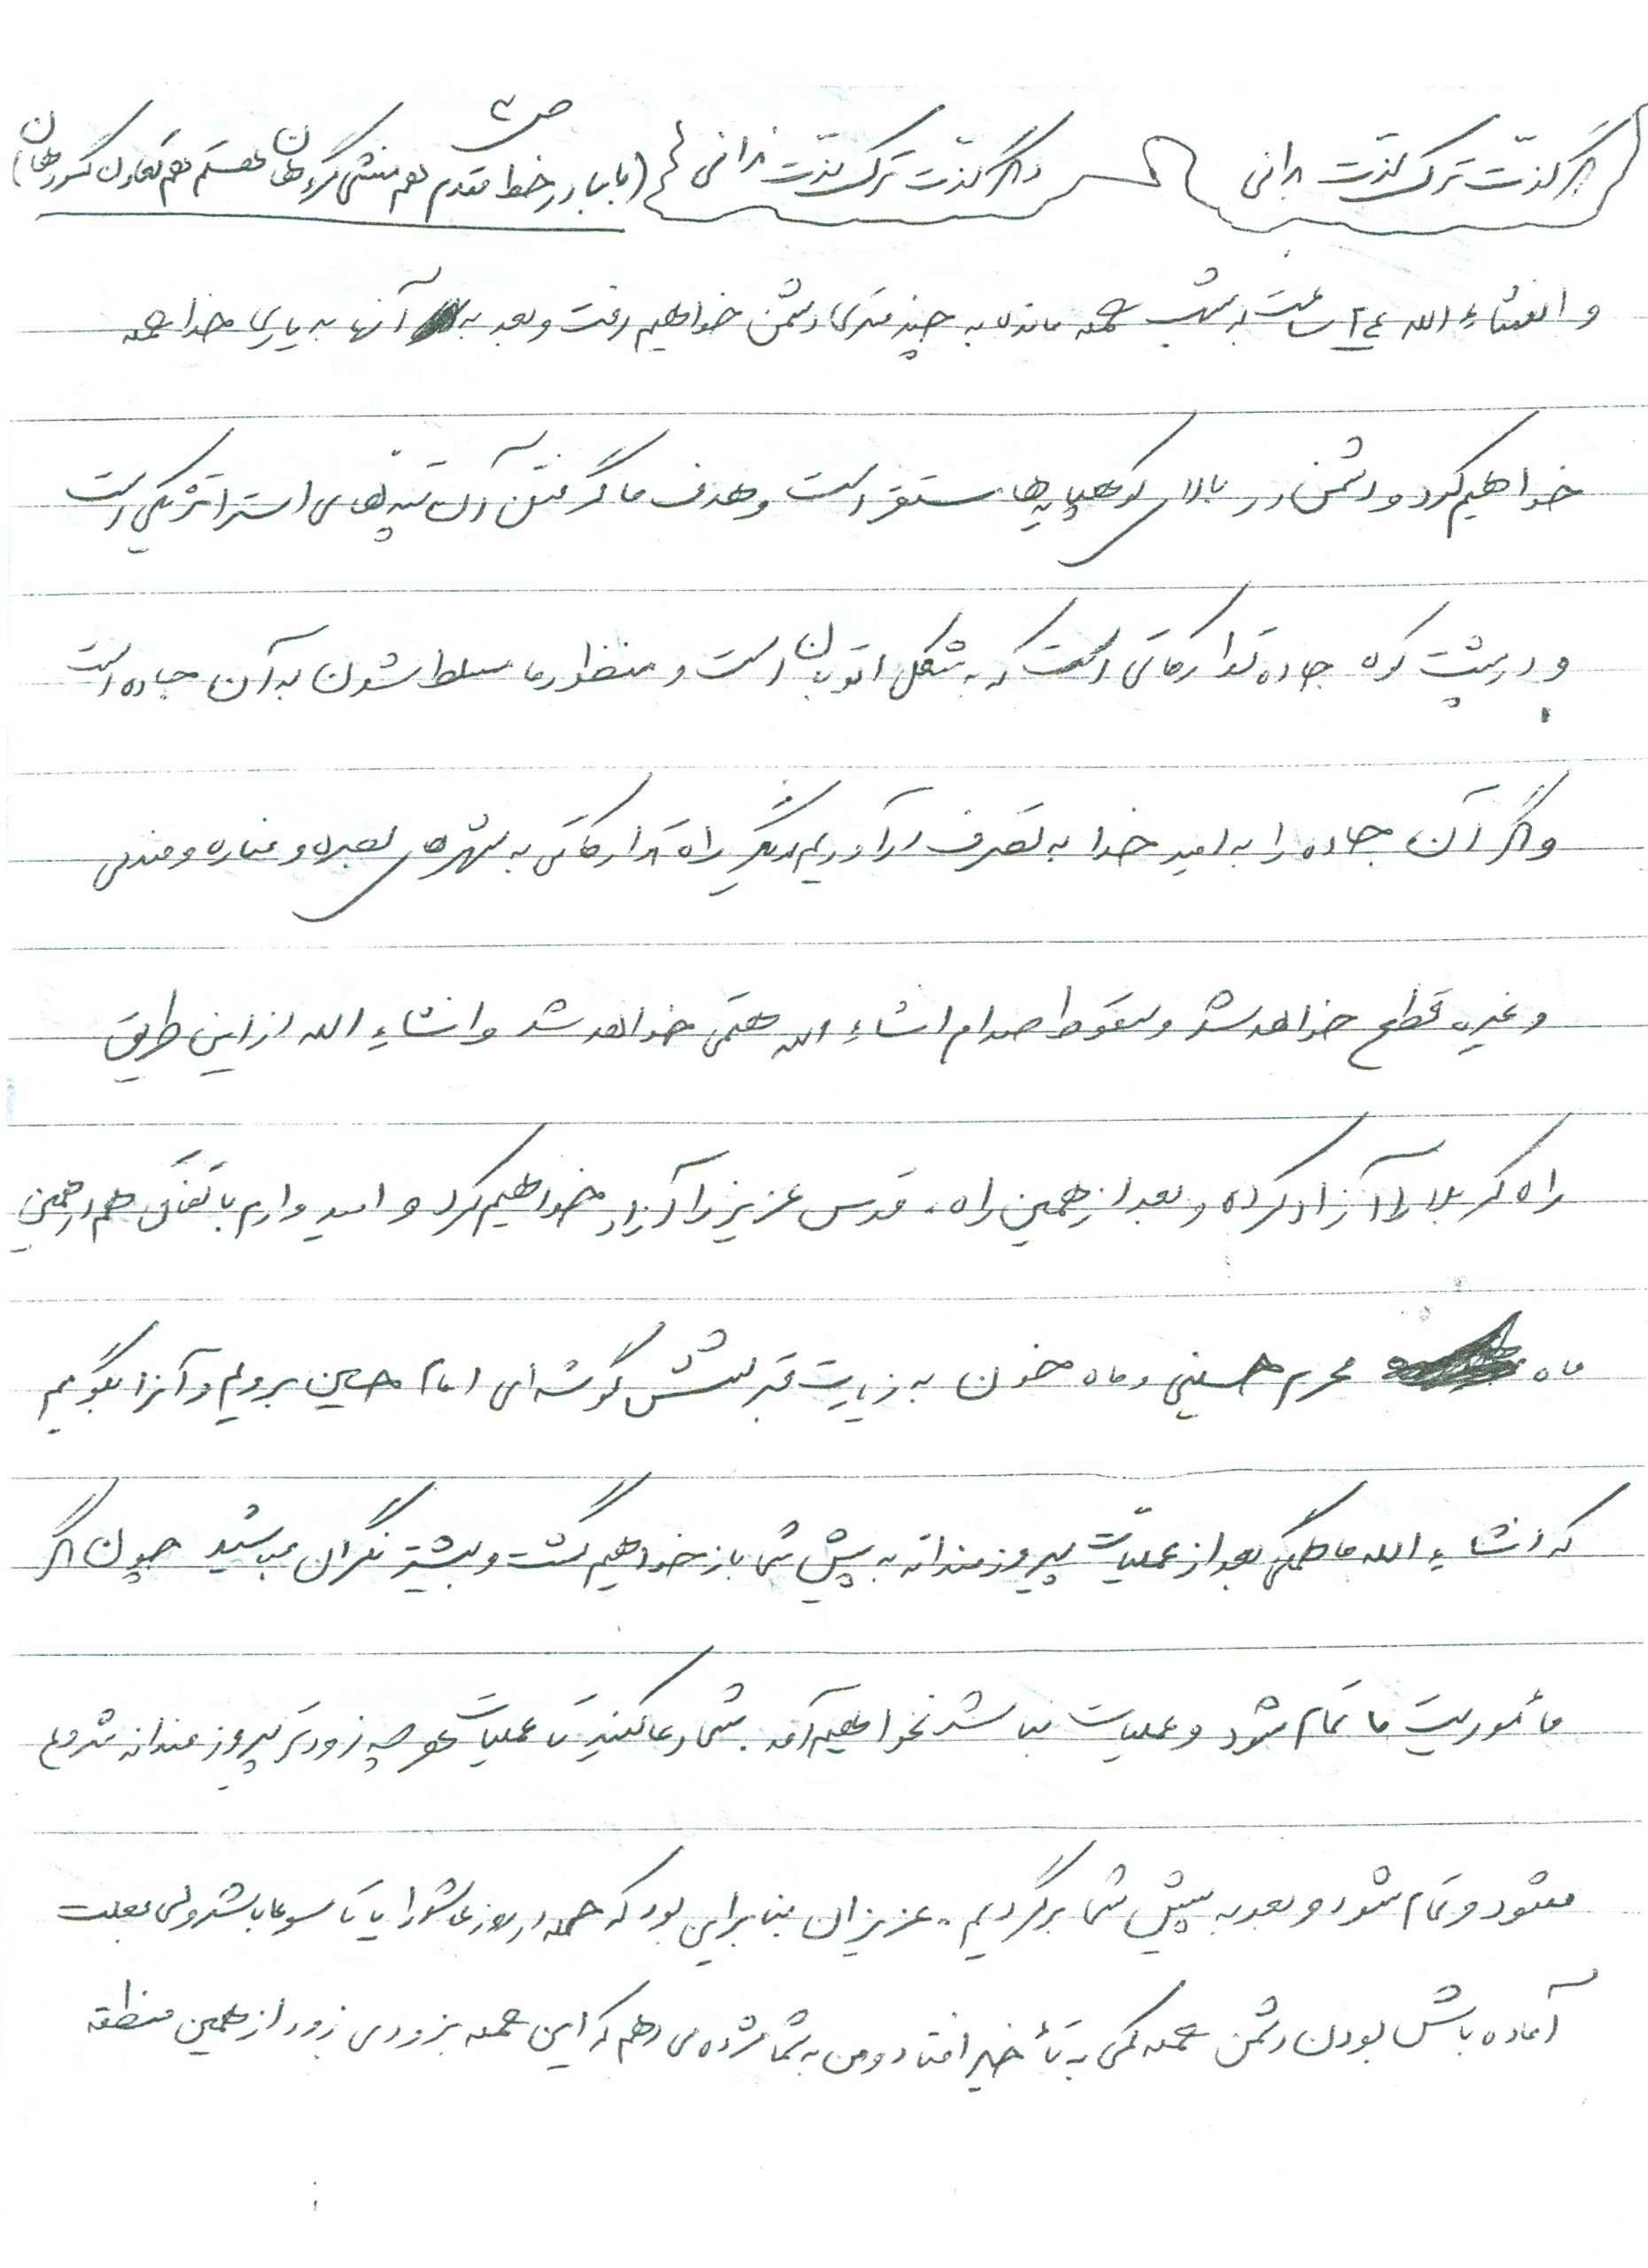 ص ۳
اگر لذت ترک لذت بدانی
و اگر لذت ترک لذت بدانی (ما باید در خط مقدم هم منشی گروهان هستم هم تعاون گروهان)
و انشاء الله ۲۴ ساعت به شب حمله مانده به چند متری دشمن خواهیم رفت و بعد به آنها به یاری خدا حمله
خواهیم کرد و دشمن در بالای کوهپایه ها مستقر است و هدف ما گرفتن آن تپه های استراتژیکی است
و در پشت کوه جاده تدارکاتی است که به شکل اتوبان است و منظور ما مسلط شدن به آن جاده است
و اگر آن جاده را به امید خدا به تصرف درآوریم دیگر راه تدارکاتی به شهرهای بصره و عماره و مندلی
و غیره قطع خواهد شد و سقوط صدام انشاء الله حتمی خواهد شد و انشاء الله از این طریق
راه کربلا را آزاد کرده و بعد از همین راه، قدس عزیز را آزاد خواهیم کرد و امیدوارم باتفاق هم در همین
ماه محرم حسینی و ماه خون به زیارت قبر شش گوشه ای امام حسین برویم و آنرا بگوییم
که انشاء الله ما همگی بعد از عملیات پیروزمندانه به پیش شما باز خواهیم گشت و بیشتر نگران نباشید چون اگر
مأموریت ما تمام شود و عملیات نباشد نخواهیم آمد. شما دعا کنید تا عملیات هر چه زودتر پیروزمندانه شروع
بشود و تمام شود و بعد به پیش شما برگردیم. عزیزان بنا براین بود که حمله در روز عاشورا یا تاسوعا باشد ولی بعلت
آماده باش بودن دشمن حمله کمی به تأخیر افتاد و من به شما مژده می دهم که این حمله بزودی زود از همین منطقه